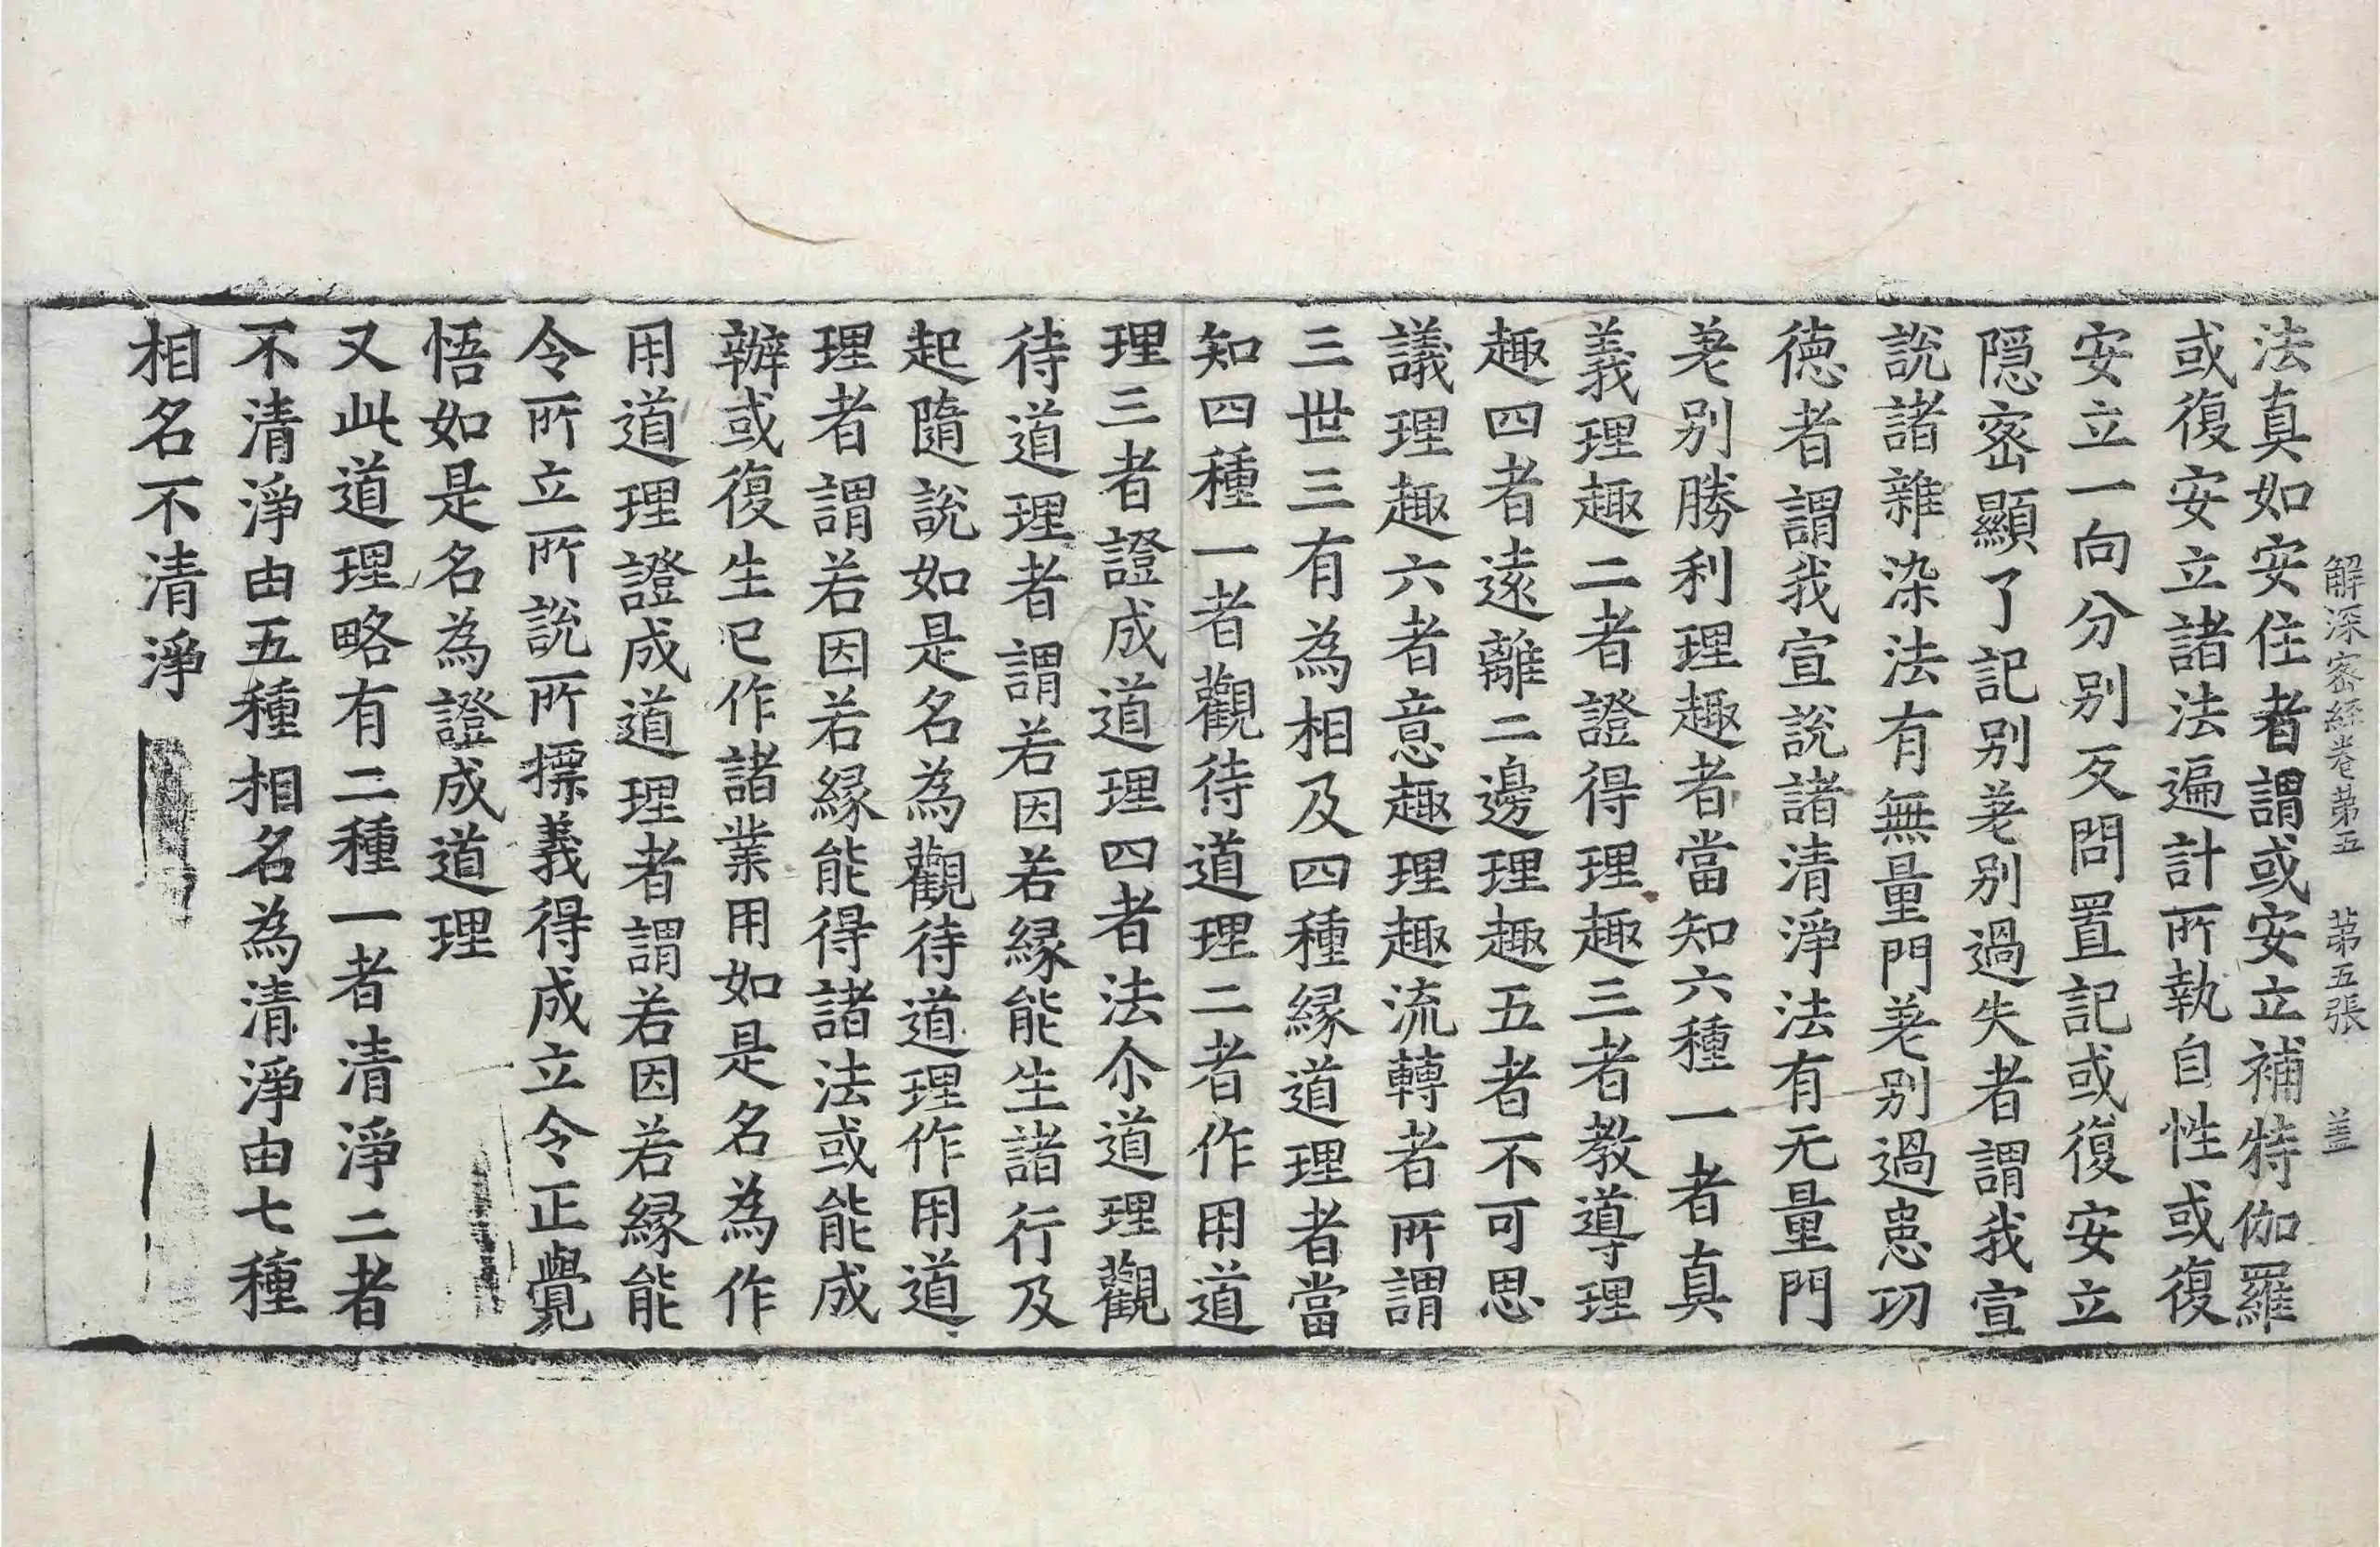 解深密經卷苐五　苐五張　盖
法真如安住者謂或安立補特伽羅
或復安立諸法遍計所執自性或復
安立一向分别反問置記或復安立
隱密顯了記别差别過失者謂我宣
說諸雜染法有無量門差别過患功
德者謂我宣說諸清淨法有无量門
差别勝利理趣者當知六種一者真
義理趣二者證得理趣三者教導理
趣四者遠離二邊理趣五者不可思
議理趣六者意趣理趣流轉者所謂
三世三有為相及四種緣道理者當
知四種一者觀待道理二者作用道
理三者證成道理四者法尒道理觀
待道理者謂若因若緣能生諸行及
起隨說如是名為觀待道理作用道
理者謂若因若緣能得諸法或能成
辦或復生已作諸業用如是名為作
用道理證成道理者謂若因若緣能
令所立所說所摽義得成立令正覺
悟如是名為證成道理
又此道理略有二種一者清淨二者
不清淨由五種相名為清淨由七種
相名不清淨